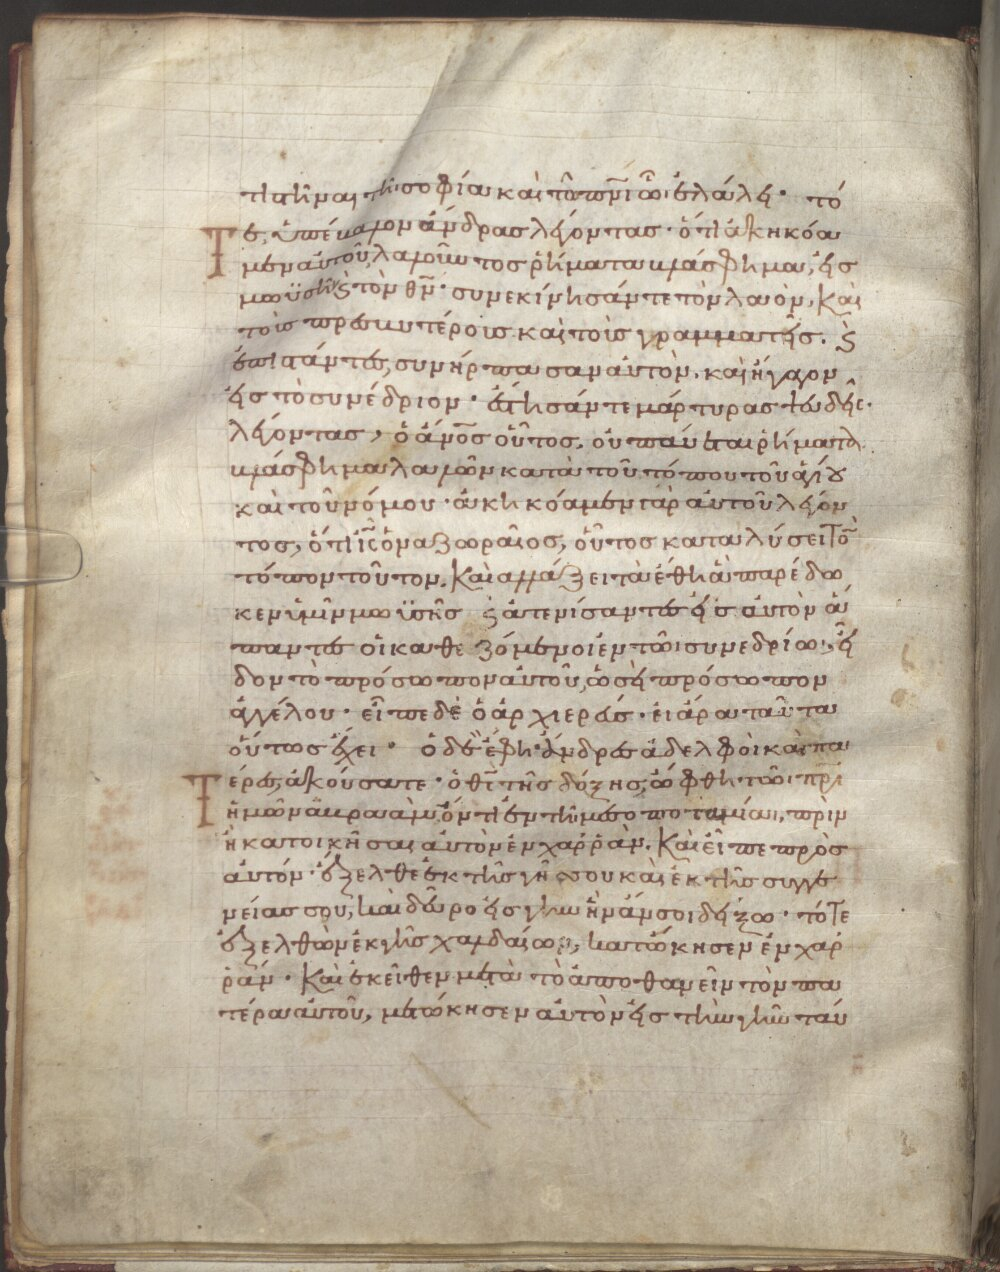 τιστῆναι τῆ σοφία καὶ τῶ πνι ὧ ἐλάλει· τό
τε, ὑπέβαλον ἄνδρας λέγοντας· ὅτι ἀκηκόα
μεν αὐτοῦ, λαλοῦντος ῥήματα βλάσφημα, εἰς
μωϋσῆν ϗ τὸν θν· συνεκίνησάν τε τὸν λαὸν, καὶ
τοὺς πρεσβυτέροις καὶ τοὶς γραμματεῖς. ϗ
ἐπιστάντες, συνήρπασαν αὐτὸν. καὶ ἤγαγον
εἰς τὸ συνέδριον· ἔστησάν τε μάρτυρας ψευδεῖς·
λέγοντας, ὁ ἄνος οὗτος, οὐ παύεται ῥήματα
βλάσφημα λαλῶν κατὰ τοῦ τόπου τοῦ ἁγίου
καὶ τοῦ νόμου· ἀκηκόαμεν γὰρ αὐτοῦ λέγον
τος, ὅτι ις ὁ ναζωραῖος, οὗτος καταλύσει τὸν
τόπον τοῦτον. καὶ ἀλλάξει τὰ ἔθη ἃ παρέδω
κεν ὑμῖν μωϋσῆς ϗ ἀτενίσαντες εἰς αὐτὸν ἅ
παντες οἱ καθεζόμενοι ἐν τῶ συνεδρίω, εἶ
δον τὸ πρόσωπον αὐτοῦ, ὡσεὶ πρόσωπον
ἀγγέλου· εἶπε δὲ ὁ ἀρχιερεύς· εἰ ἄρα ταῦτα
οὕτως ἔχει· ὁ δὲ ἔφη· ἄνδρες ἀδελφοὶ καὶ πα
τέρες, ἀκούσατε· ὁ θς τῆς δόξης, ὤφθη τῶ πρι
ἡμῶν ἁβραὰμ, ὄντι ἐν τῆ μεσοποταμία, πρὶν
ἢ κατοικῆσαι αὐτὸν ἐν χαρρὰν. καὶ εἶπε πρὸς
αὐτόν· ἔξελθε ἐκ τῆς γῆς σου καὶ ἐκ τῆς συγγε
νείας σου, καὶ δεῦρο εἰς γῆν ἣν ἄν σοι δείξω· τότε
ἐξελθὼν ἐκ γῆς χαλδαίων, κατώκησεν ἐν χαρ
ράν· κακεῖθεν μετὰ τὸ ἀποθανεῖν τὸν πα
τέρα αὐτοῦ, μετώκησεν αὐτὸν εἰς τὴν γῆν ταύ